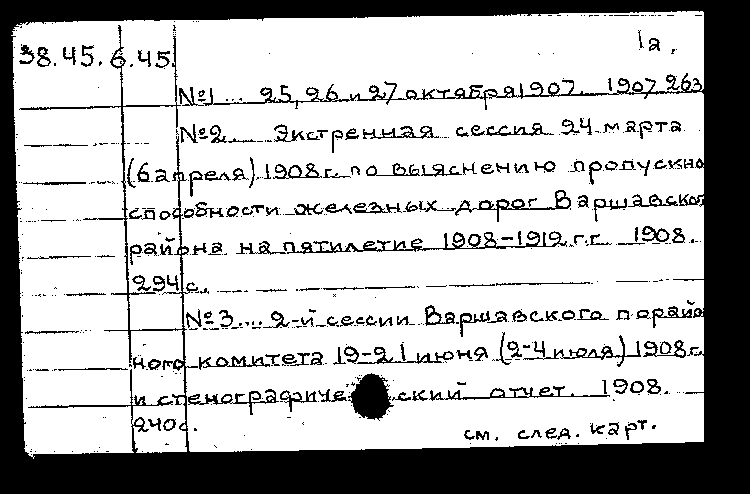 38.45.6.45. 1а.
№1... 25, 26 и 27 октября 1907. 1907 263
№2... Экстренная сессия 24 марта
(6 апреля) 1908 г. по выяснению пропускно
способности железных дорог Варшавског
района на пятилетие 1908-1912 г.г. 1908.
294 с.
№3.... 2-й сессии Варшавского порайо
ного комитета 19-21 июня (2-4 июля) 1908 г.
и стенографиче ский отчет. 1908.
240 с.
см. след. карт.